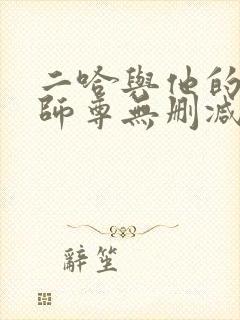 二哈與他的
師尊無刪減
辭笙